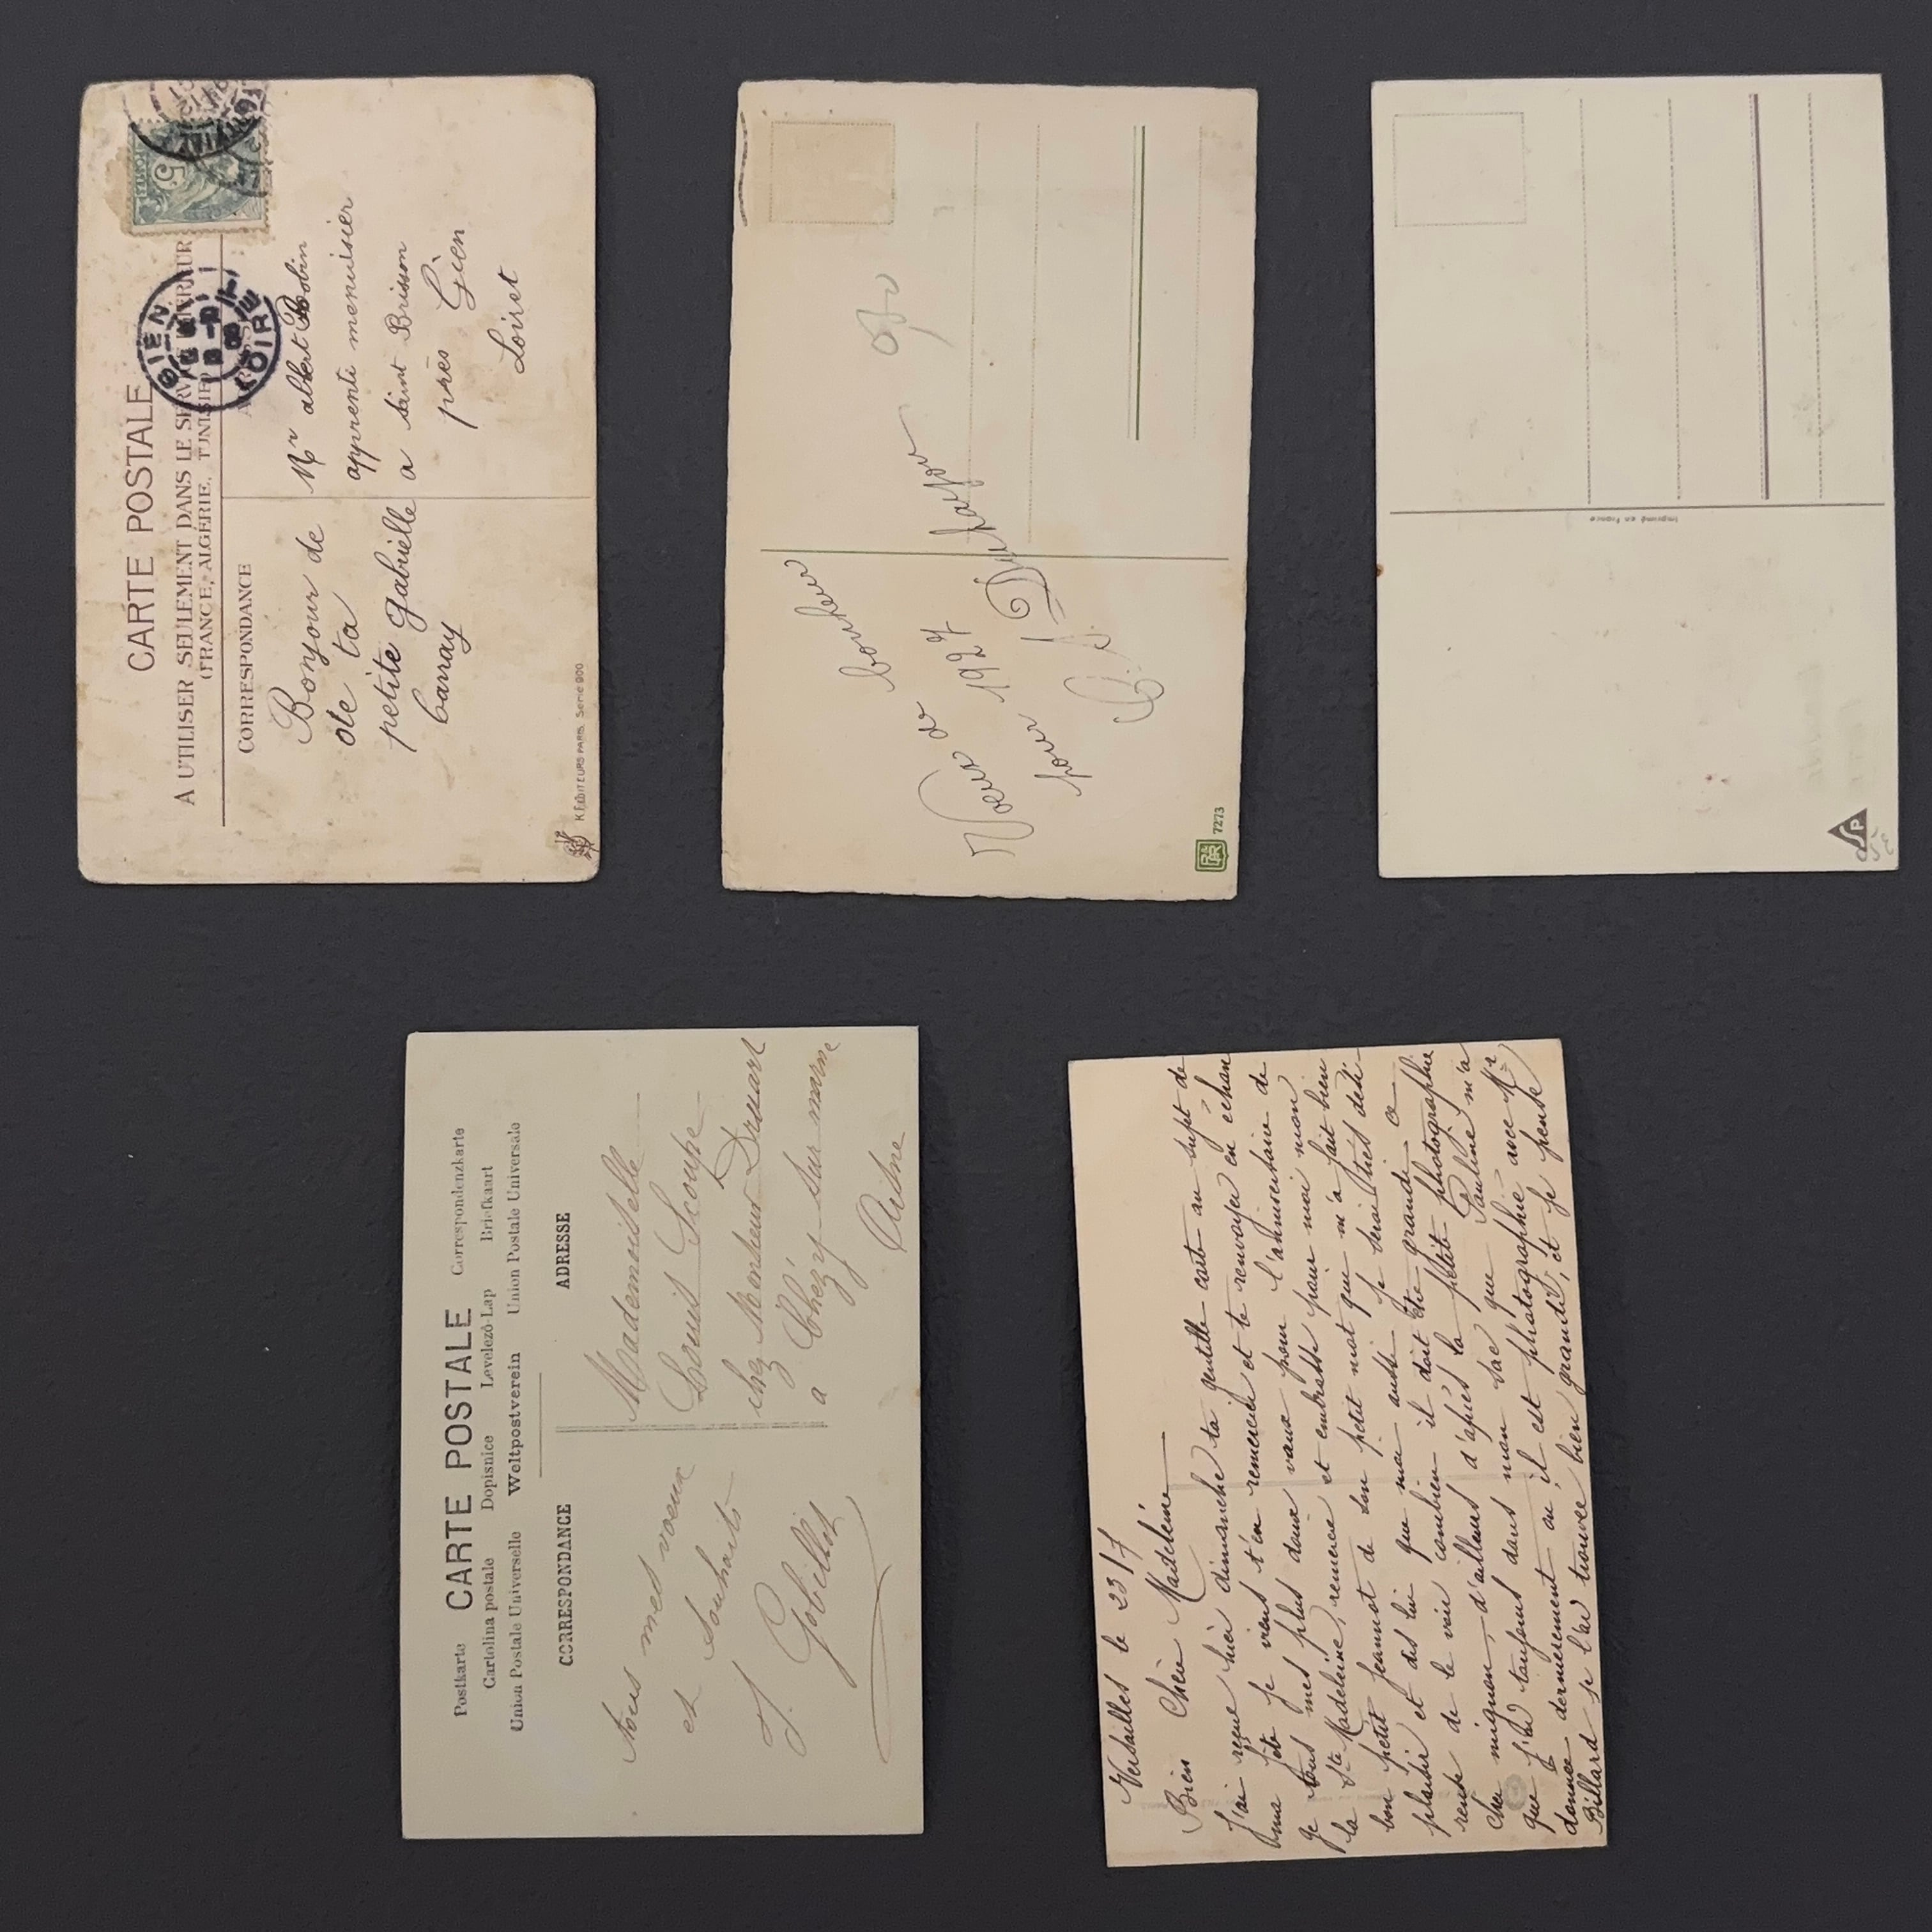 CARTE POSTALE
A UTILISER SEULEMENT DANS LE SERVICE INTÉRIEUR
(FRANCE, ALGÉRIE, TUNISIE)
CORRESPONDANCE
Bonjour de
de ta
petite gabrielle
K.F. EDITEURS PARIS. Serie 900
GIEN
LOIRET
5
Mr albert Bobin
apprenti menuisier
a saint Brisson
près Gien
Loiret
Voeux de bonheur
pour 1927
7273
Imprimé en France
Postkarte CARTE POSTALE Correspondenzkarte
Cartolina postale Dopisnice Levelezö-Lap Briefkaart
Union Postale Universelle Weltpostverein Union Postale Universale
CORRESPONDANCE
ADRESSE
tous mes voeux
et souhaits
J. Gobillot
Mademoiselle
chez Monsieur Dussart
a Chézy sur marne
Aisne
Versailles le 23/7
Bien Chère Madeleine
J'ai reçue hier dimanche ta gentille carte au sujet de
ma fête je viens t'en remercier et te renvoyer en échan
ge tous mes plus doux vœux pour l'anniversaire de
la Ste Madeleine, remercie et embrasse pour moi mon
bon petit Jeannot de son petit mot qui m'a fait bien
plaisir et dis lui que moi aussi je serai très dési
reuse de le voir combien il doit être grandi ce
cher mignon, d'ailleurs d'après la petite photographie
que j'ai toujours dans mon sac que Pauline m'a
donnée dernièrement où il est photographié avec Mr
Billard je l'ai trouvé bien grandi, et je pense